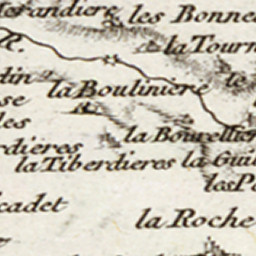 les Bonne
la Tourn
din
la Bouliniere
le
se
les
la Bourellier
rdieres
la Tiberdieres la Gui
les P
cadet
la Roche